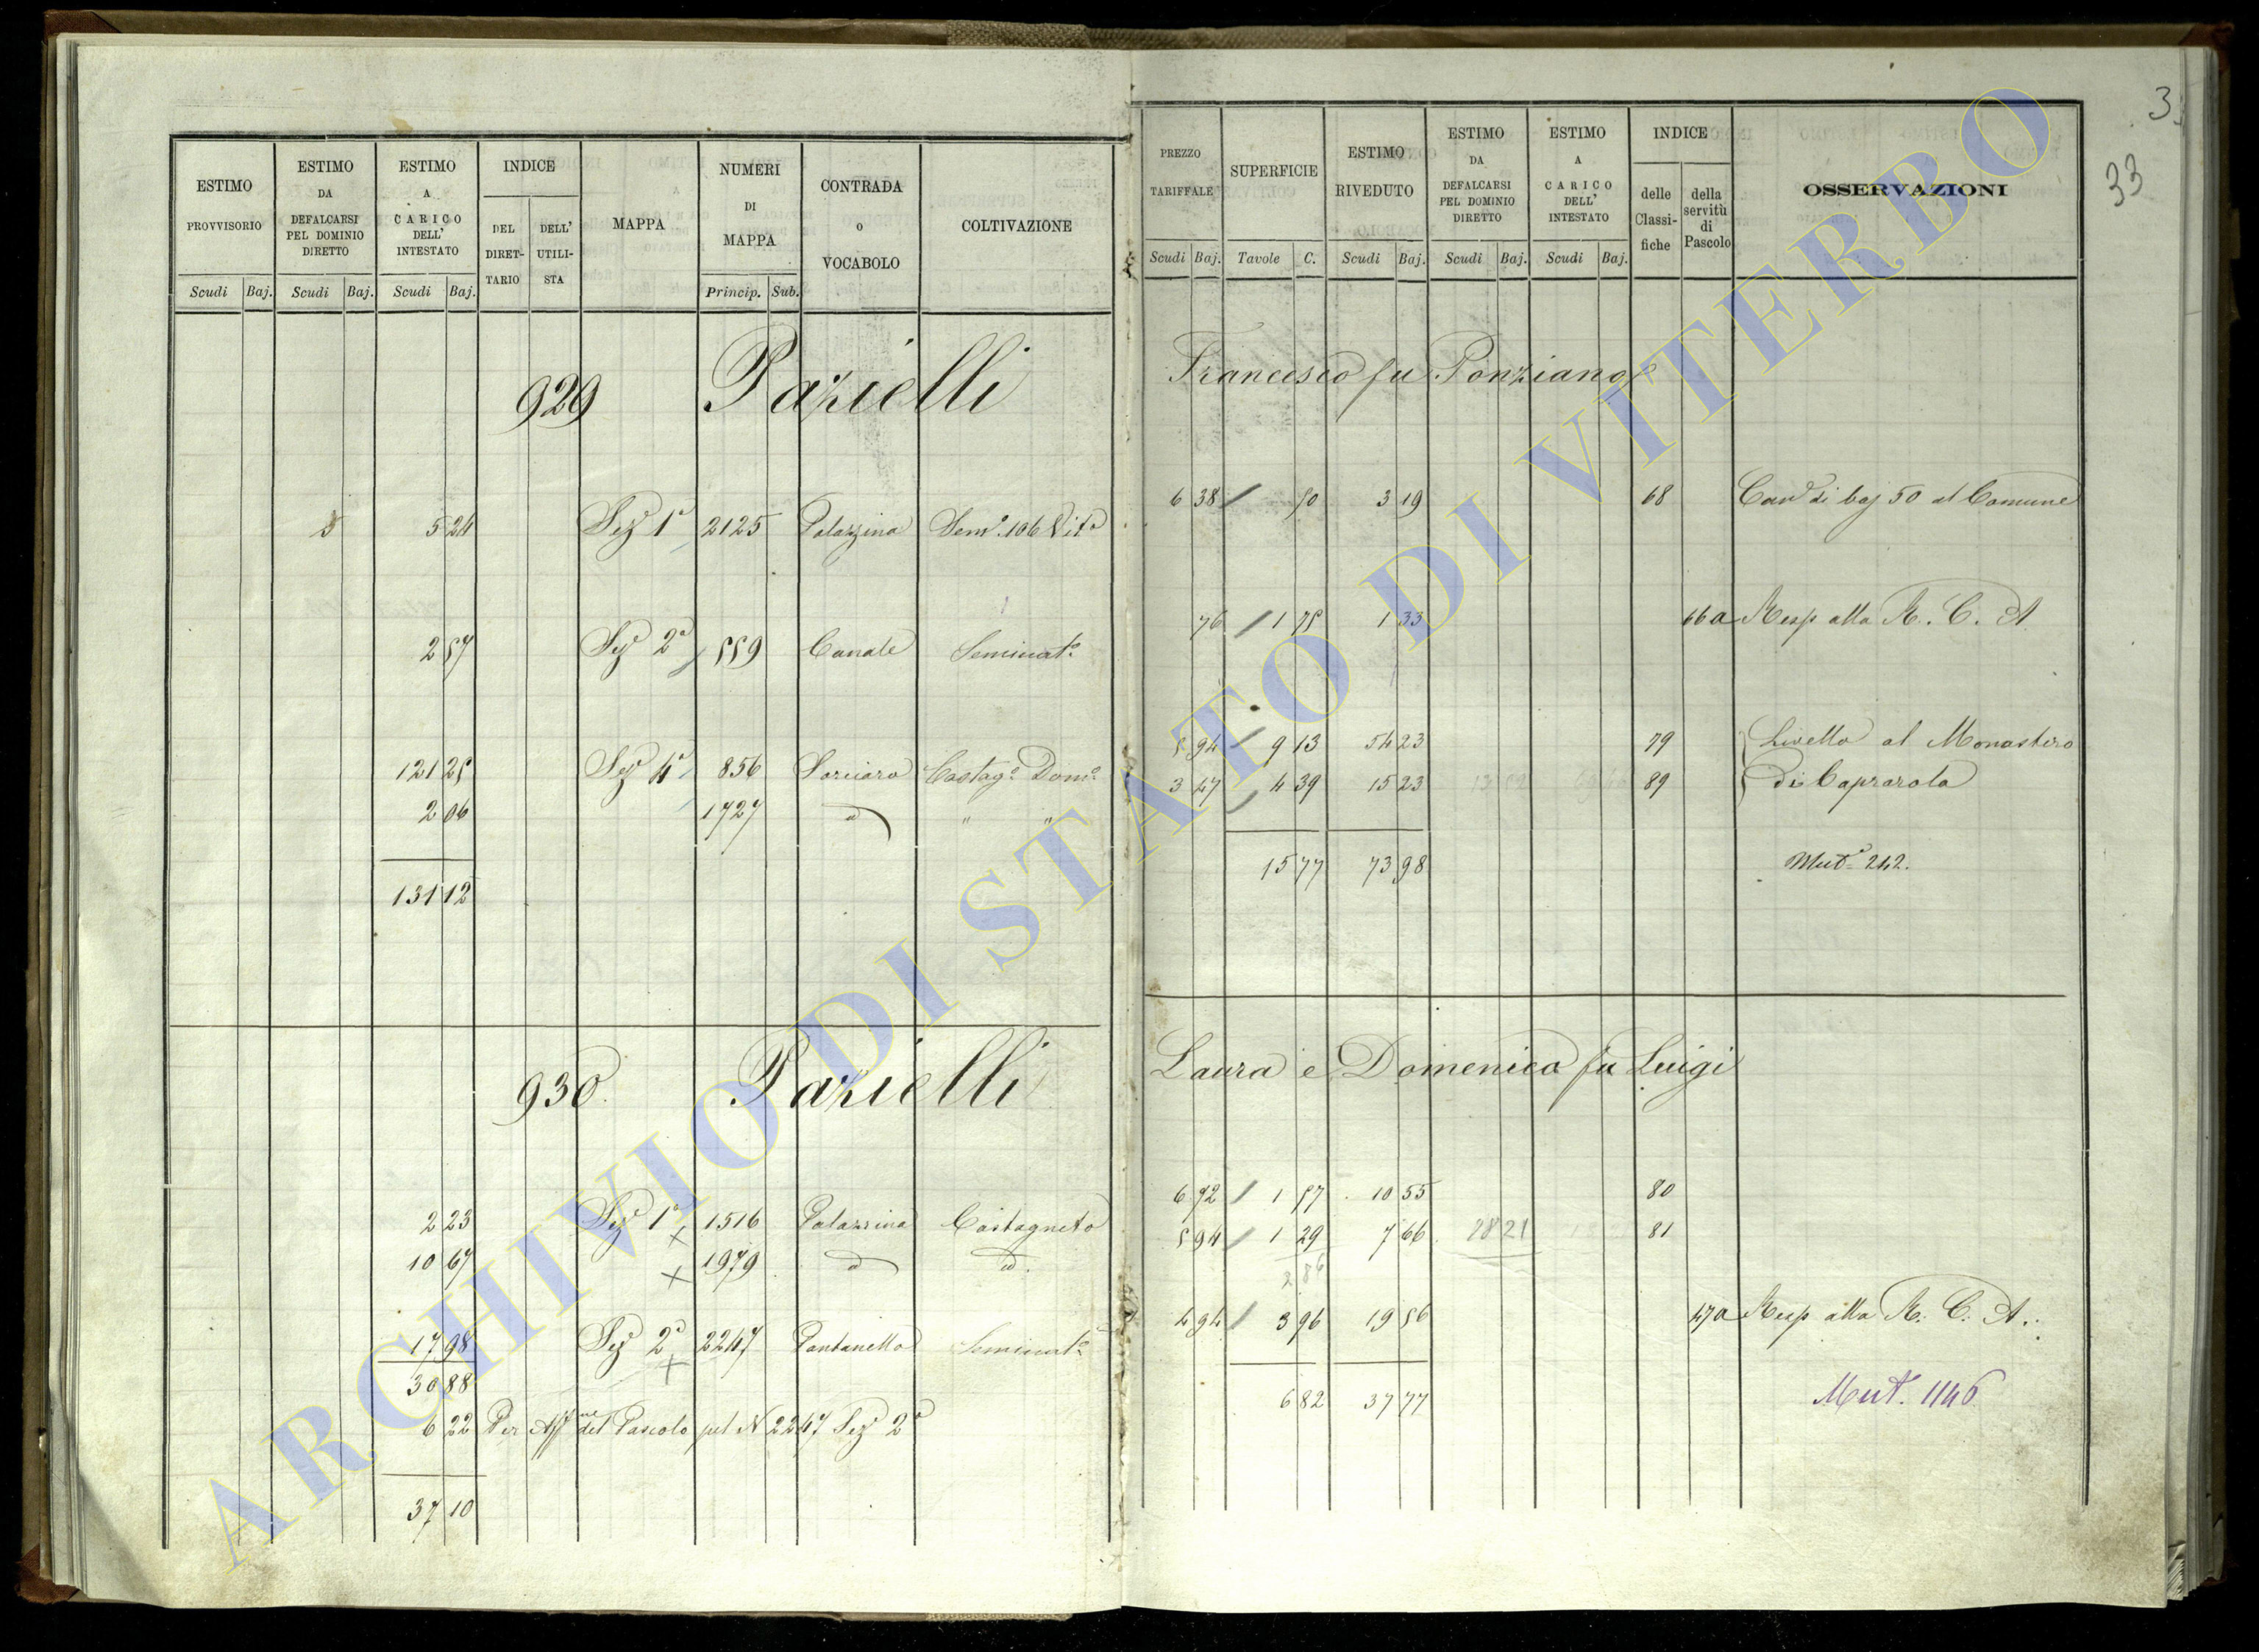 3
33
ESTIMO PROVVISORIO
ESTIMO DA DEFALCARSI PEL DOMINIO DIRETTO
ESTIMO A CARICO DELL' INTESTATO
INDICE
DEL DIRETTARIO
DELL' UTILISTA
MAPPA
NUMERI DI MAPPA
CONTRADA o VOCABOLO
COLTIVAZIONE
Scudi Baj. Scudi Baj. Scudi Baj. Princip. Sub.
PREZZO TARIFFALE
SUPERFICIE
ESTIMO RIVEDUTO
ESTIMO DA DEFALCARSI PEL DOMINIO DIRETTO
ESTIMO A CARICO DELL' INTESTATO
INDICE
delle Classifiche
della servitù di Pascolo
OSSERVAZIONI
Scudi Baj. Tavole C. Scudi Baj. Scudi Baj. Scudi Baj.
929 Pazielli Francesco fu Ponziano
5 24 Sez 1ª 2125 Palazzina 6 38 50 3 19 68 di baj 50 al Comune
2 57 Sez 2ª 559 Canale Seminatº 76 1 75 1 33 66a Resp alla R. C. A
121 25 Sez 4ª 856 Sorciaro Castagº Domº 5 94 9 13 54 23 79 Livello al Monastero
2 06 1727 d " " 3 47 4 39 15 23 89 di Caprarola
131 12 15 77 73 98 Mutª 242.
930. Pazielli Laura e Domenica fu Luigi
2 23 Sez 1ª 1516 Palazzina Castagneto 6 72 1 57 10 55 80
10 67 1979 d d. 5 94 1 29 7 66 28 21 81
2 86
17 98 Sez 2ª 2247 Pantanello Seminatº 4 94 3 96 19 56 47a Resp alla R. C. A.
30 88 6 82 37 77 Mut. 1146
6 22 Per Affne del Pascolo pel N 2247 Sez 2ª
37 10
ARCHIVIO DI STATO DI VITERBO